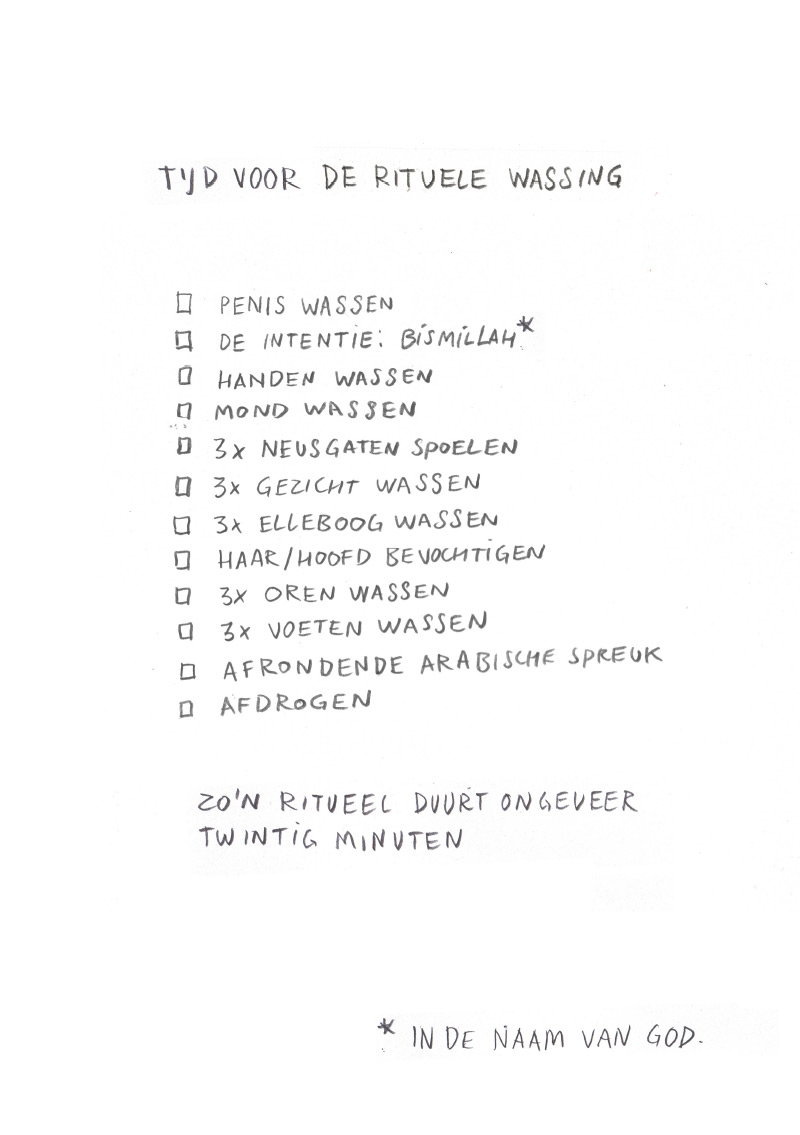 TIJD VOOR DE RITUELE WASSING
☐ PENIS WASSEN
☐ DE INTENTIE: BISMILLAH*
☐ HANDEN WASSEN
☐ MOND WASSEN
☐ 3x NEUSGATEN SPOELEN
☐ 3x GEZICHT WASSEN
☐ 3x ELLEBOOG WASSEN
☐ HAAR/HOOFD BEVOCHTIGEN
☐ 3x OREN WASSEN
☐ 3x VOETEN WASSEN
☐ AFRONDENDE ARABISCHE SPREUK
☐ AFDROGEN
ZO'N RITUEEL DUURT ONGEVEER
TWINTIG MINUTEN
* IN DE NAAM VAN GOD.